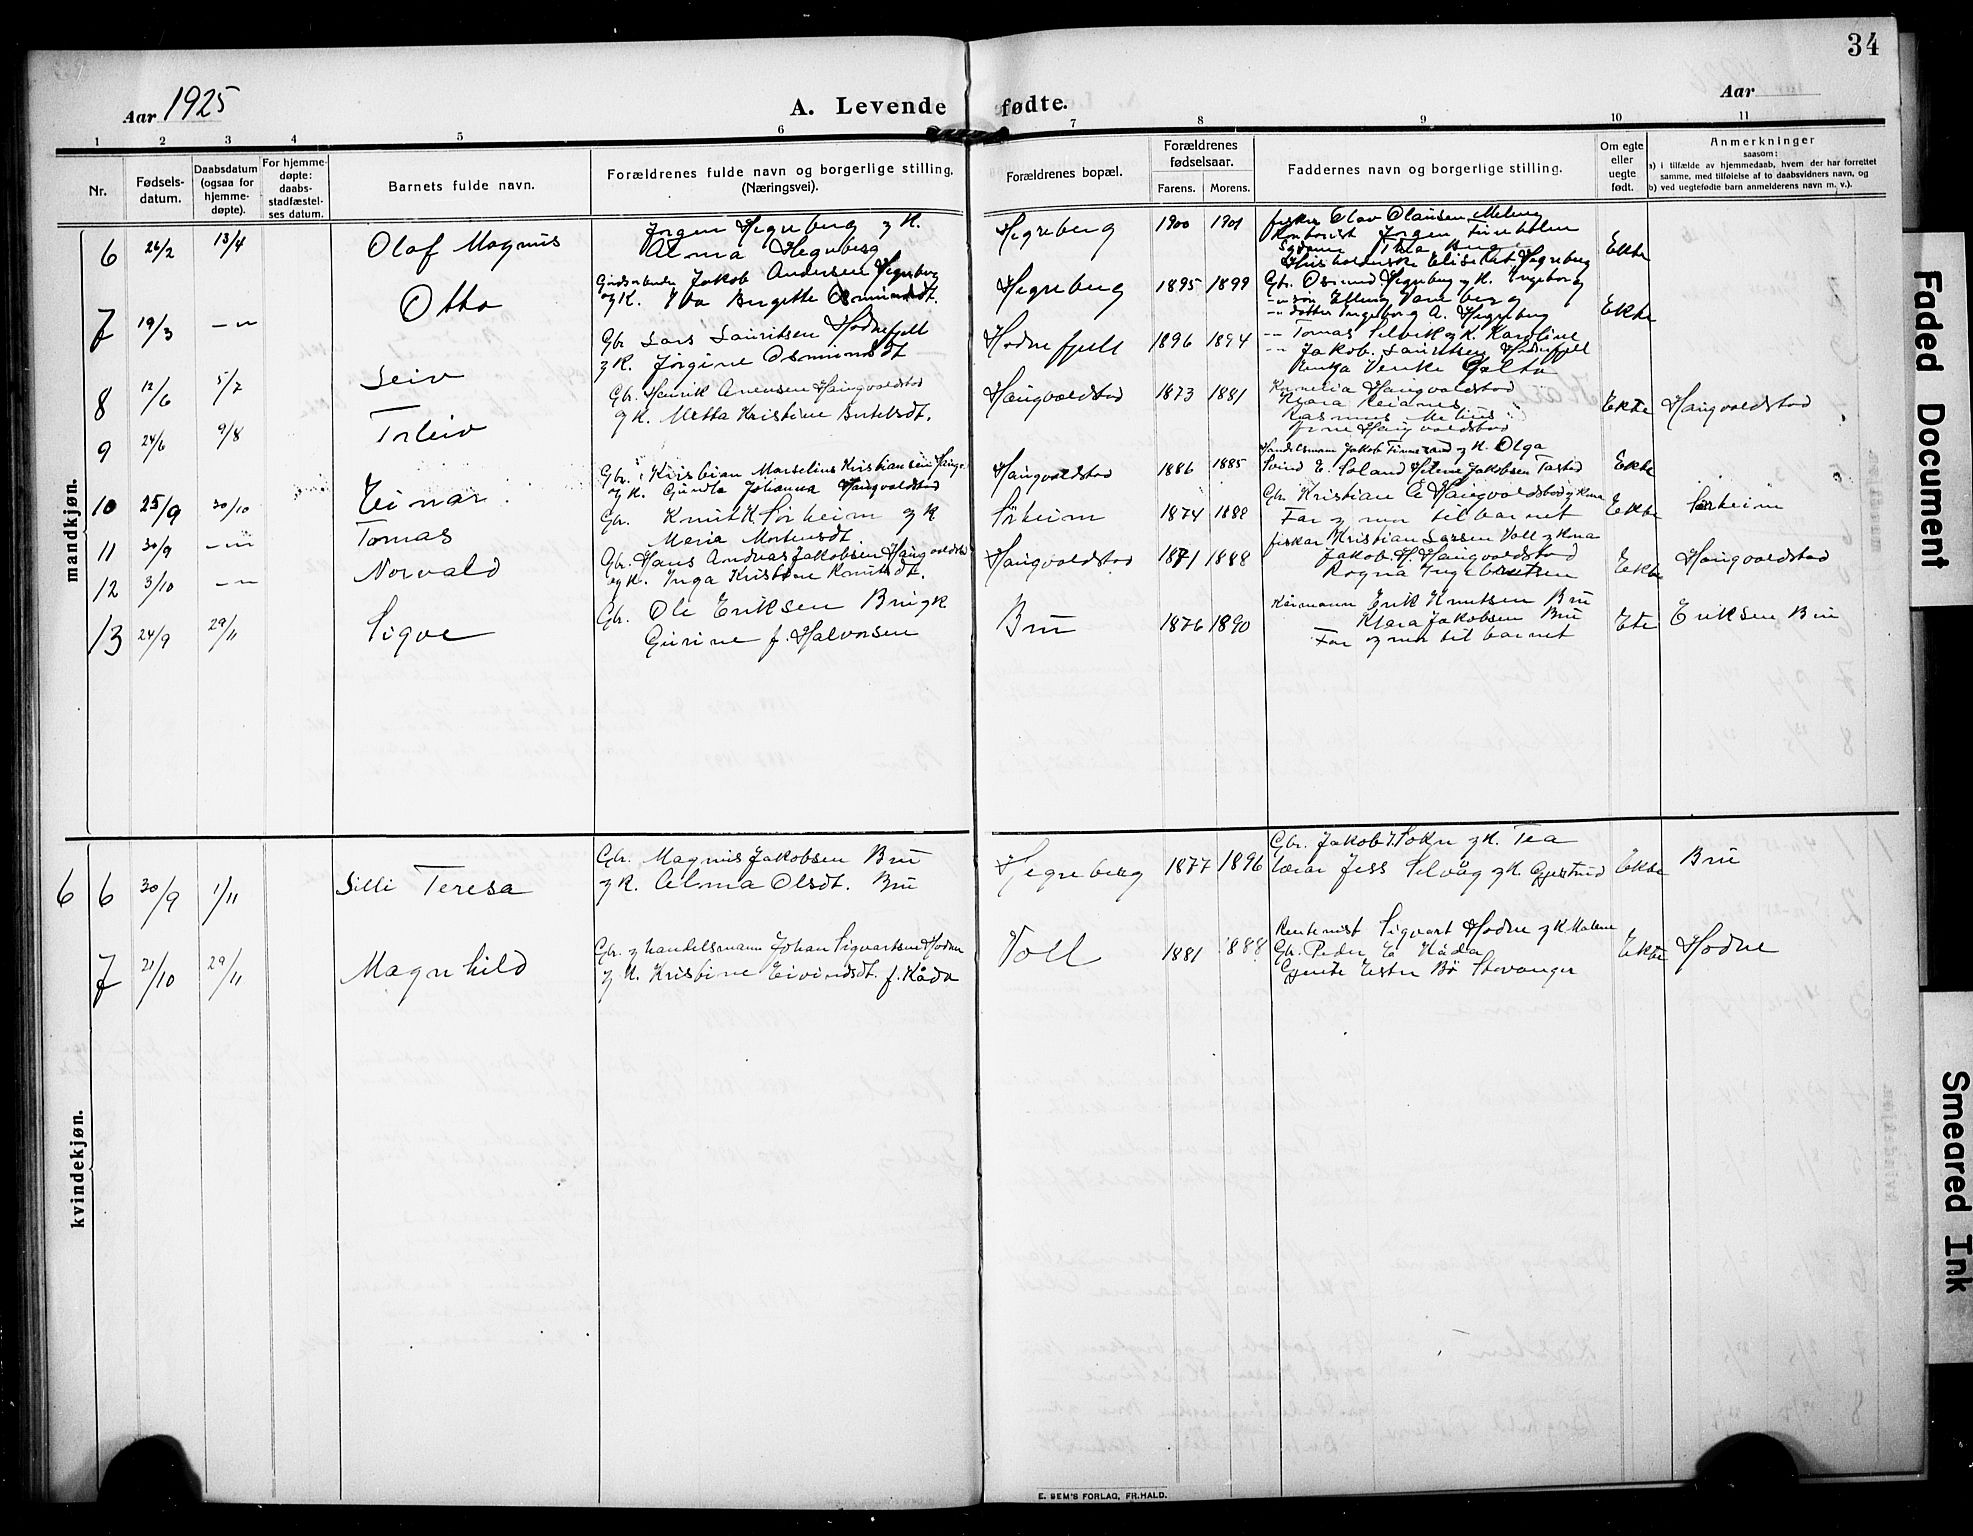 34
Aar 1925
A. Levende fødte.
Aar
1 2 3 4 5 6 7 8 9 10 11
Nr.
Fødsels-
datum.
Daabsdatum
(ogsaa for
hjemme-
døpte).
For hjemme-
døpte:
daabs-
stadfæstel-
ses datum.
Barnets fulde navn.
Forældrenes fulde navn og borgerlige stilling.
(Næringsvei).
Forældrenes bopæl.
Forældrenes
fødselsaar.
Farens. Morens.
Faddernes navn og borgerlige stilling.
Om egte
eller
uegte
født.
Anmerkninger
saasom:
a) i tilfælde av hjemmedaab, hvem der har forrettet
samme, med tilføielse af to daabsvidners navn, og
b) ved uegtefødte barn anmelderens navn m. v.).
mandkjøn.
6 26/2 13/4 Olaf Magnus
Jørgen Hegreberg g K.
Alma Hegreberg
Hegreberg 1900 1901
fisker Olav Olausen Meling
Kontorist Jørgen
Elisabet Hegreberg
Ekte
7 19/3 -"- Otto
Gardsarbeider Jakob Andersen Hegreberg
og K. Osmundsdt.
Hegreberg 1895 1899
Gbr. Osmund Hegreberg g K. Ingeborg
-"- datter Ingeborg A. Hegreberg
Ekte
8 12/6 5/7 Leiv
Gbr Lars Lauritsen Hodnefjell
g K. Jørgine Osmundsdt
Hodnefjell 1896 1894
-"- Tomas Selvik g K. Karoline
-"- Jakob Lauritsen Hodnefjell
9 24/6 9/8 Torleiv
Gbr. Henrik Arnensen Haugvaldstad
g K. Metta Kristine
Haugvaldstad 1873 1881
Kornelia Haugvaldstad
Klara Reianes
Rasmus
Haugvaldstad
Ekte Haugvaldstad
10 25/9 30/10 Einar
Gbr. Kristian Marselius Kristiansen Haugv.
og K. Gunda Johanna Haugvaldstad
Haugvaldstad 1886 1885
Handelsmann Jakob Finnesand g K. Olga
Svend E. Soland Helene Jakobsen Tasted
Gbr Kristian E Haugvaldstad g Kona
Ekte
11 30/9 -"- Tomas
Gbr. Knut K Sørheim g K
Maria Mortensdt.
Sørheim 1874 1882
Far g mor til barnet
Ekte Sørheim
12 3/10 -"- Norvald
Gbr. Hans Andreas Jakobsen Haugvaldstad
og K. Inga Kristine Knutsdt.
Haugvaldstad 1871 1888
fisker Kristian Larsen Voll g kona
Jakob H. Haugvaldstad
Ragna Ingebretsen
Ekte Haugvaldstad
13 24/9 29/11 Sigve
Gbr. Ole Eriksen Bru g K
Gurine f. Halvorsen
Bru 1876 1890
Erik Knutsen Bru
Klara Jakobsen Bru
Far g mor til barnet
Ete Eriksen Bru
kvindekjøn.
6 6 30/9 1/11 Silli Teresa
Gbr. Magnus Jakobsen Bru
g K. Alma Olsdt. Bru
Hegreberg 1877 1896
Gbr. Jakob T. Sokn g K. Tea
Lærar Jess Selvåg g K. Gjertrud
Ekte Bru
7 21/10 29/11 Magnhild
Gbr. g handelsmann Johan Sigvartsen Hodne
g K. Kristine Eivindsdt. f. Kåda
Voll 1881 1888
Rentenist Sigvart Hodne g K Malene
Gbr. Peder E Kåda
Gjente Ester Bø Stavanger
Ekte Hodne
E. SEM'S FORLAG, FR.HALD.
Faded Document
Smeared Ink